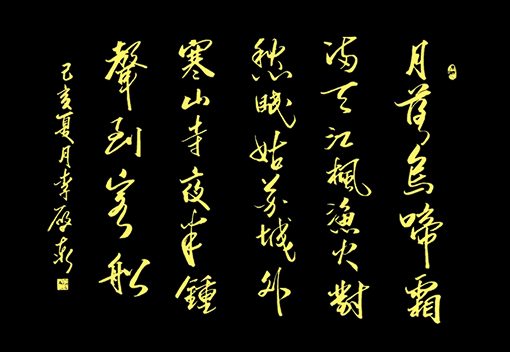 月落烏啼霜
滿天江楓漁火對
愁眠姑蘇城外
寒山寺夜半鍾
聲到客船
己亥夏月李